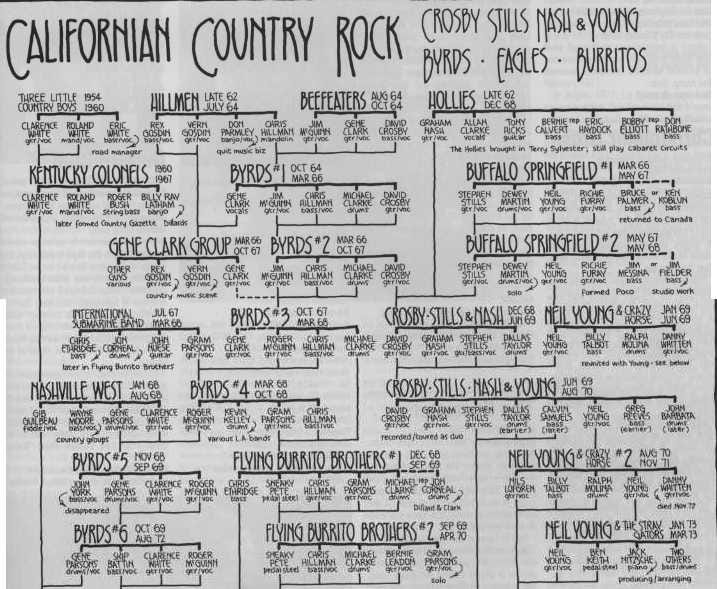 CALIFORNIAN COUNTRY ROCK
CROSBY STILLS NASH & YOUNG
BYRDS · EAGLES · BURRITOS
THREE LITTLE COUNTRY BOYS 1954 1960
CLARENCE WHITE gtr/voc
ROLAND WHITE mand/voc
ERIC WHITE bass/voc
road manager
HILLMEN LATE 62 JULY 64
REX GOSDIN bass/voc
VERN GOSDIN gtr/voc
DON PARMLEY banjo/voc
CHRIS HILLMAN mandolin
quit music biz
BEEFEATERS AUG 64 OCT 64
JIM McGUINN gtr/voc
GENE CLARK gtr/voc
DAVID CROSBY bass/voc
HOLLIES LATE 62 DEC 68
GRAHAM NASH gtr/voc
ALLAN CLARKE vocals
TONY HICKS guitar
BERNIE CALVERT bass
rep
ERIC HAYDOCK bass
BOBBY ELLIOTT drums
rep
DON RATHBONE bass
The Hollies brought in Terry Sylvester; still play cabaret circuits
KENTUCKY COLONELS 1960 1967
CLARENCE WHITE gtr/voc
ROLAND WHITE mand/voc
ROGER BUSH string bass
BILLY RAY LATHAM banjo
later fomed Country Gazette
Dillards
BYRDS #1 OCT 64 MAR 66
GENE CLARK vocals
JIM McGUINN gtr/voc
CHRIS HILLMAN bass/voc
MICHAEL CLARKE drums
DAVID CROSBY gtr/voc
BUFFALO SPRINGFIELD #1 MAR 66 MAY 67
STEPHEN STILLS gtr/voc
DEWEY MARTIN drums/voc
NEIL YOUNG gtr/voc
RICHIE FURAY gtr/voc
BRUCE PALMER bass
or
KEN KOBLUN bass
returned to Canada
GENE CLARK GROUP MAR 66 OCT 67
OTHER GUYS various
REX GOSDIN gtr/voc
VERN GOSDIN gtr/voc
GENE CLARK gtr/voc
country music scene
BYRDS #2 MAR 66 OCT 67
JIM McGUINN gtr/voc
CHRIS HILLMAN bass/voc
MICHAEL CLARKE drums
DAVID CROSBY gtr/voc
BUFFALO SPRINGFIELD #2 MAY 67 MAY 68
STEPHEN STILLS gtr/voc
DEWEY MARTIN drums/voc
NEIL YOUNG gtr/voc
RICHIE FURAY gtr/voc
JIM MESSINA bass
or
JIM FIELDER bass
solo
formed Poco
studio work
INTERNATIONAL SUBMARINE BAND JUL 67 MAR 68
CHRIS ETHRIDGE bass
JON CORNEAL drums
JOHN NUESE guitar
GRAM PARSONS gtr/voc
later in Flying Burrito Brothers
BYRDS #3 OCT 67 MAR 68
GENE CLARK gtr/voc
ROGER McGUINN gtr/voc
CHRIS HILLMAN bass/voc
MICHAEL CLARKE drums
CROSBY·STILLS & NASH DEC 68 JUN 69
DAVID CROSBY gtr/voc
GRAHAM NASH gtr/voc
STEPHEN STILLS gtr/bass/voc
DALLAS TAYLOR drums
NEIL YOUNG & CRAZY HORSE JAN 69 JUN 69
NEIL YOUNG gtr/voc
BILLY TALBOT bass
RALPH MOLINA drums
DANNY WHITTEN gtr/voc
reunited with Young - see below
NASHVILLE WEST JAN 68 AUG 68
GIB GUILBEAU fiddle/voc
WAYNE MOORE bass/voc
GENE PARSONS drums/voc
CLARENCE WHITE gtr/voc
country groups
BYRDS #4 MAR 68 OCT 68
ROGER McGUINN gtr/voc
KEVIN KELLEY drums
GRAM PARSONS gtr/voc
CHRIS HILLMAN bass/voc
various L.A bands
CROSBY·STILLS·NASH & YOUNG JUN 69 AUG 70
DAVID CROSBY gtr/voc
GRAHAM NASH gtr/voc
STEPHEN STILLS gtr/voc
DALLAS TAYLOR drums (earlier)
CALVIN SAMUELS bass (later)
NEIL YOUNG gtr/voc
GREG REEVES bass (earlier)
JOHN BARBATA drums (later)
recorded/toured as duo
BYRDS #5 NOV 68 SEP 69
JOHN YORK bass/voc
GENE PARSONS drums/voc
CLARENCE WHITE gtr/voc
ROGER McGUINN gtr/voc
disappeared
FLYING BURRITO BROTHERS #1 DEC 68 SEP 69
CHRIS ETHRIDGE bass
SNEAKY PETE pedal steel
CHRIS HILLMAN gtr/voc
GRAM PARSONS gtr/voc
MICHAEL CLARKE drums
rep
JON CORNEAL drums
Dillard & Clark
NEIL YOUNG & CRAZY HORSE #2 AUG 70 NOV 71
NILS LOFGREN gtr/voc
BILLY TALBOT bass
RALPH MOLINA drums
NEIL YOUNG gtr/voc
DANNY WHITTEN gtr/voc
died Nov 72
BYRDS #6 OCT 69 AUG 72
GENE PARSONS drums/voc
SKIP BATTIN bass/voc
CLARENCE WHITE gtr/voc
ROGER McGUINN gtr/voc
FLYING BURRITO BROTHERS #2 SEP 69 APR 70
SNEAKY PETE pedal steel
CHRIS HILLMAN bass/voc
MICHAEL CLARKE drums
BERNIE LEADON gtr/voc
GRAM PARSONS gtr/voc
solo
NEIL YOUNG & THE STRAY GATORS JAN 73 MAR 73
NEIL YOUNG gtr/voc
BEN KEITH pedal steel
JACK NITZSCHE piano
TWO OTHERS bass/drums
producing/arranging